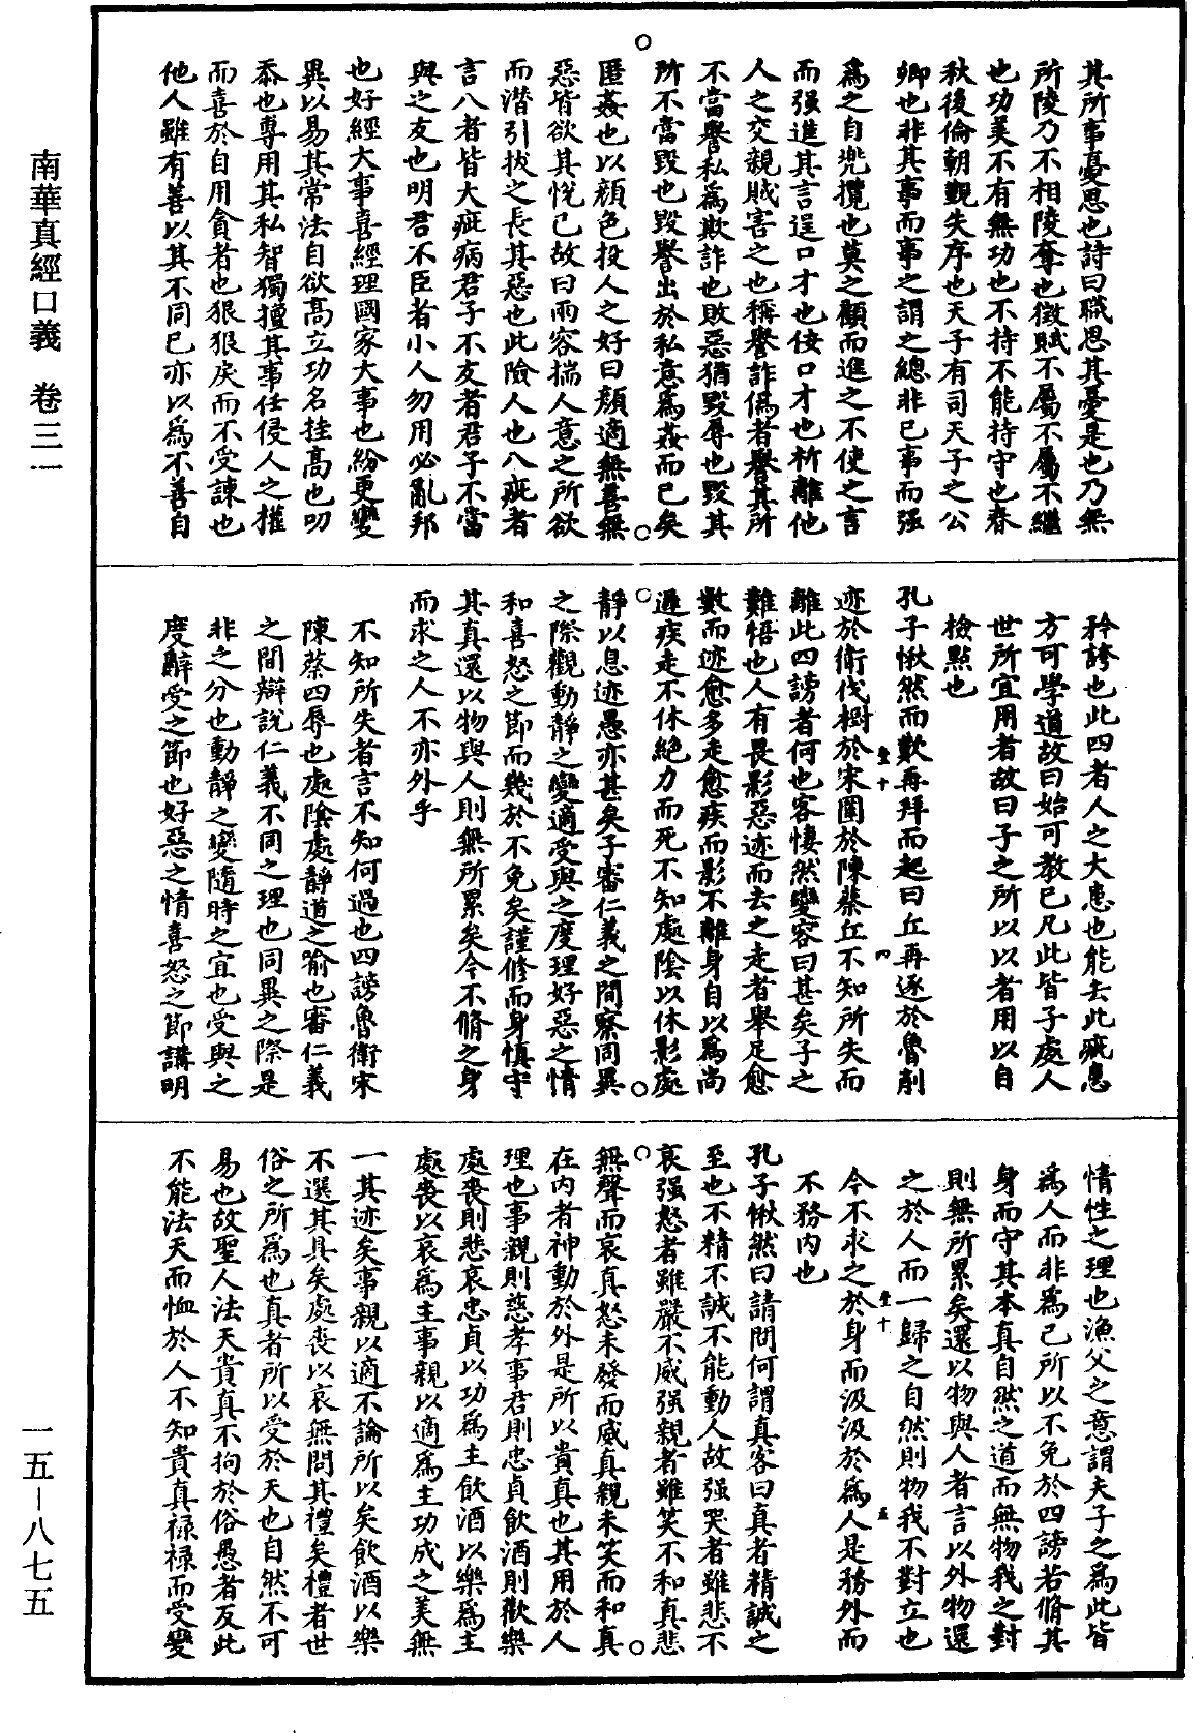 其所事憂思也詩曰職思其憂是也乃無
所陵乃不相陵奪也徵賦不屬不屬不繼
也功美不有無功也不持不能持守也春
秋後倫朝覲失序也天子有司天子之公
卿也非其事而事之謂之總非已事而强
為之自兜攬也莫之顧而進之不使之言
而强進其言逞口才也佞口才也析離他
人之交親賊害之也稱譽詐偽者譽其所
不當譽私為欺詐也敗惡猶毀辱也毀其
所不當毀也毀譽出於私意為姦而已矣
匿姦也以顏色投人之好曰顏適無善無
惡皆欲其悅已故曰兩容揣人意之所欲
而潛引拔之長其惡也此險人也八疵者
言八者皆大疵病君子不友者君子不當
與之友也明君不臣者小人勿用必亂邦
也好經大事喜經理國家大事也紛更變
異以易其常法自欲高立功名挂高也叨
忝也專用其私智獨擅其事任侵人之權
而喜於自用貪者也狠狠戾而不受諫也
他人雖有善以其不同已亦以為不善自
矜誇也此四者人之大患也能去此疵患
方可學道故曰始可教已凡此皆子處人
世所宜用者故曰子之所以以者用以自
檢點也
孔子愀然而歎再拜而起曰丘再逐於魯削
迹於衛伐樹於宋圍於陳蔡丘不知所失而
離此四謗者何也客悽然變容曰甚矣子之
難悟也人有畏影惡迹而去之走者舉足愈
數而迹愈多走愈疾而影不離身自以為尚
遲疾走不休絕力而死不知處陰以休影處
靜以息迹愚亦甚矣子審仁義之間察同異
之際觀動靜之變適受與之度理好惡之情
和喜怒之節而幾於不免矣謹修而身慎守
其真還以物與人則無所累矣今不脩之身
而求之人不亦外乎
不知所失者言不知何過也四謗魯衛宋
陳蔡四辱也處陰處靜道之喻也審仁義
之間辯說仁義不同之理也同異之際是
非之分也動靜之變隨時之宜也受與之
度辭受之節也好惡之情喜怒之節講明
情性之理也漁父之意謂夫子之為此皆
為人而非為己所以不免於四謗若脩其
身而守其本真自然之道而無物我之對
則無所累矣還以物與人者言以外物還
之於人而一歸之自然則物我不對立也
今不求之於身而汲汲於為人是務外而
不務内也
孔子愀然曰請問何謂真客曰真者精誠之
至也不精不誠不能動人故强哭者雖悲不
哀强怒者雖嚴不威强親者雖笑不和真悲
無聲而哀真怒未發而威真親未笑而和真
在内者神動於外是所以貴真也其用於人
理也事親則慈孝事君則忠貞飲酒則歡樂
處喪則悲哀忠貞以功為主飲酒以樂為主
處喪以哀為主事親以適為主功成之美無
一其迹矣事親以適不論所以矣飲酒以樂
不選其具矣處喪以哀無問其禮矣禮者世
俗之所為也真者所以受於天也自然不可
易也故聖人法天貴真不拘於俗愚者反此
不能法天而恤於人不知貴真祿祿而受變
南華真經口義 卷三一
一五—八七五